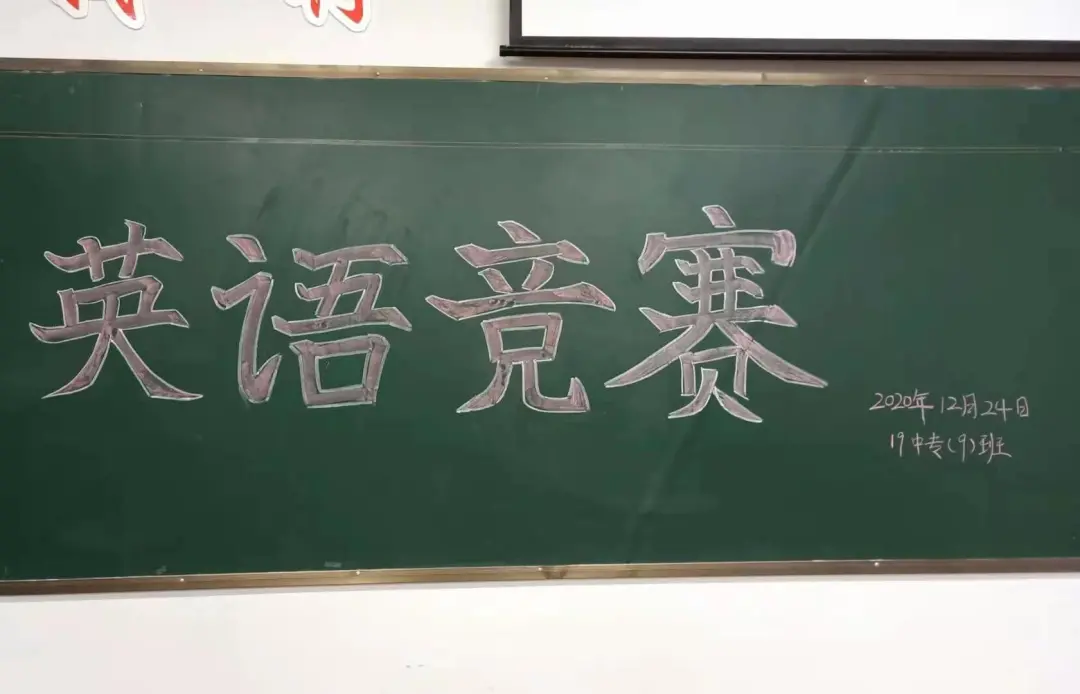 英语竞赛
2020年12月24日
19中专(9)班